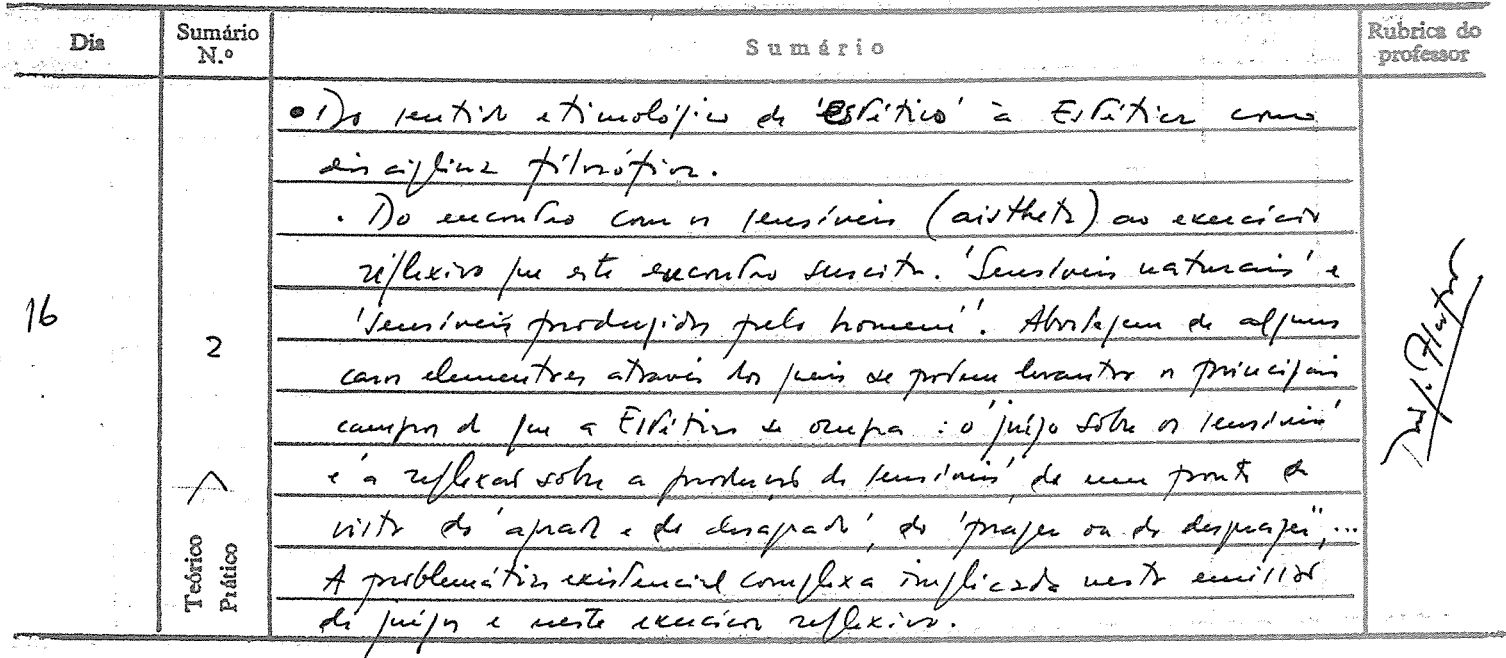 Dia
Sumário N.º
Sumário
Rubrica do professor
• Do sentido etimológico de 'estético' à Estética como
disciplina filosófica.
. Do encontro com os sensíveis (aistheta) ao exercício
reflexivo que este encontro suscita. 'Sensíveis naturais' e
'sensíveis produzidos pelo homem'. Abordagem de alguns
casos elementares através dos quais se podem levantar os principais
campos de que a Estética se ocupa : 'o juízo sobre os sensíveis'
e 'a reflexão sobre a produção de sensíveis', de um ponto de
vista do 'agrado e do desagrado', do 'prazer ou do desprazer',...
A problemática existencial complexa implicada nesta emissão
de juízos e neste exercício reflexivo.
16
2
Teórico
Prático